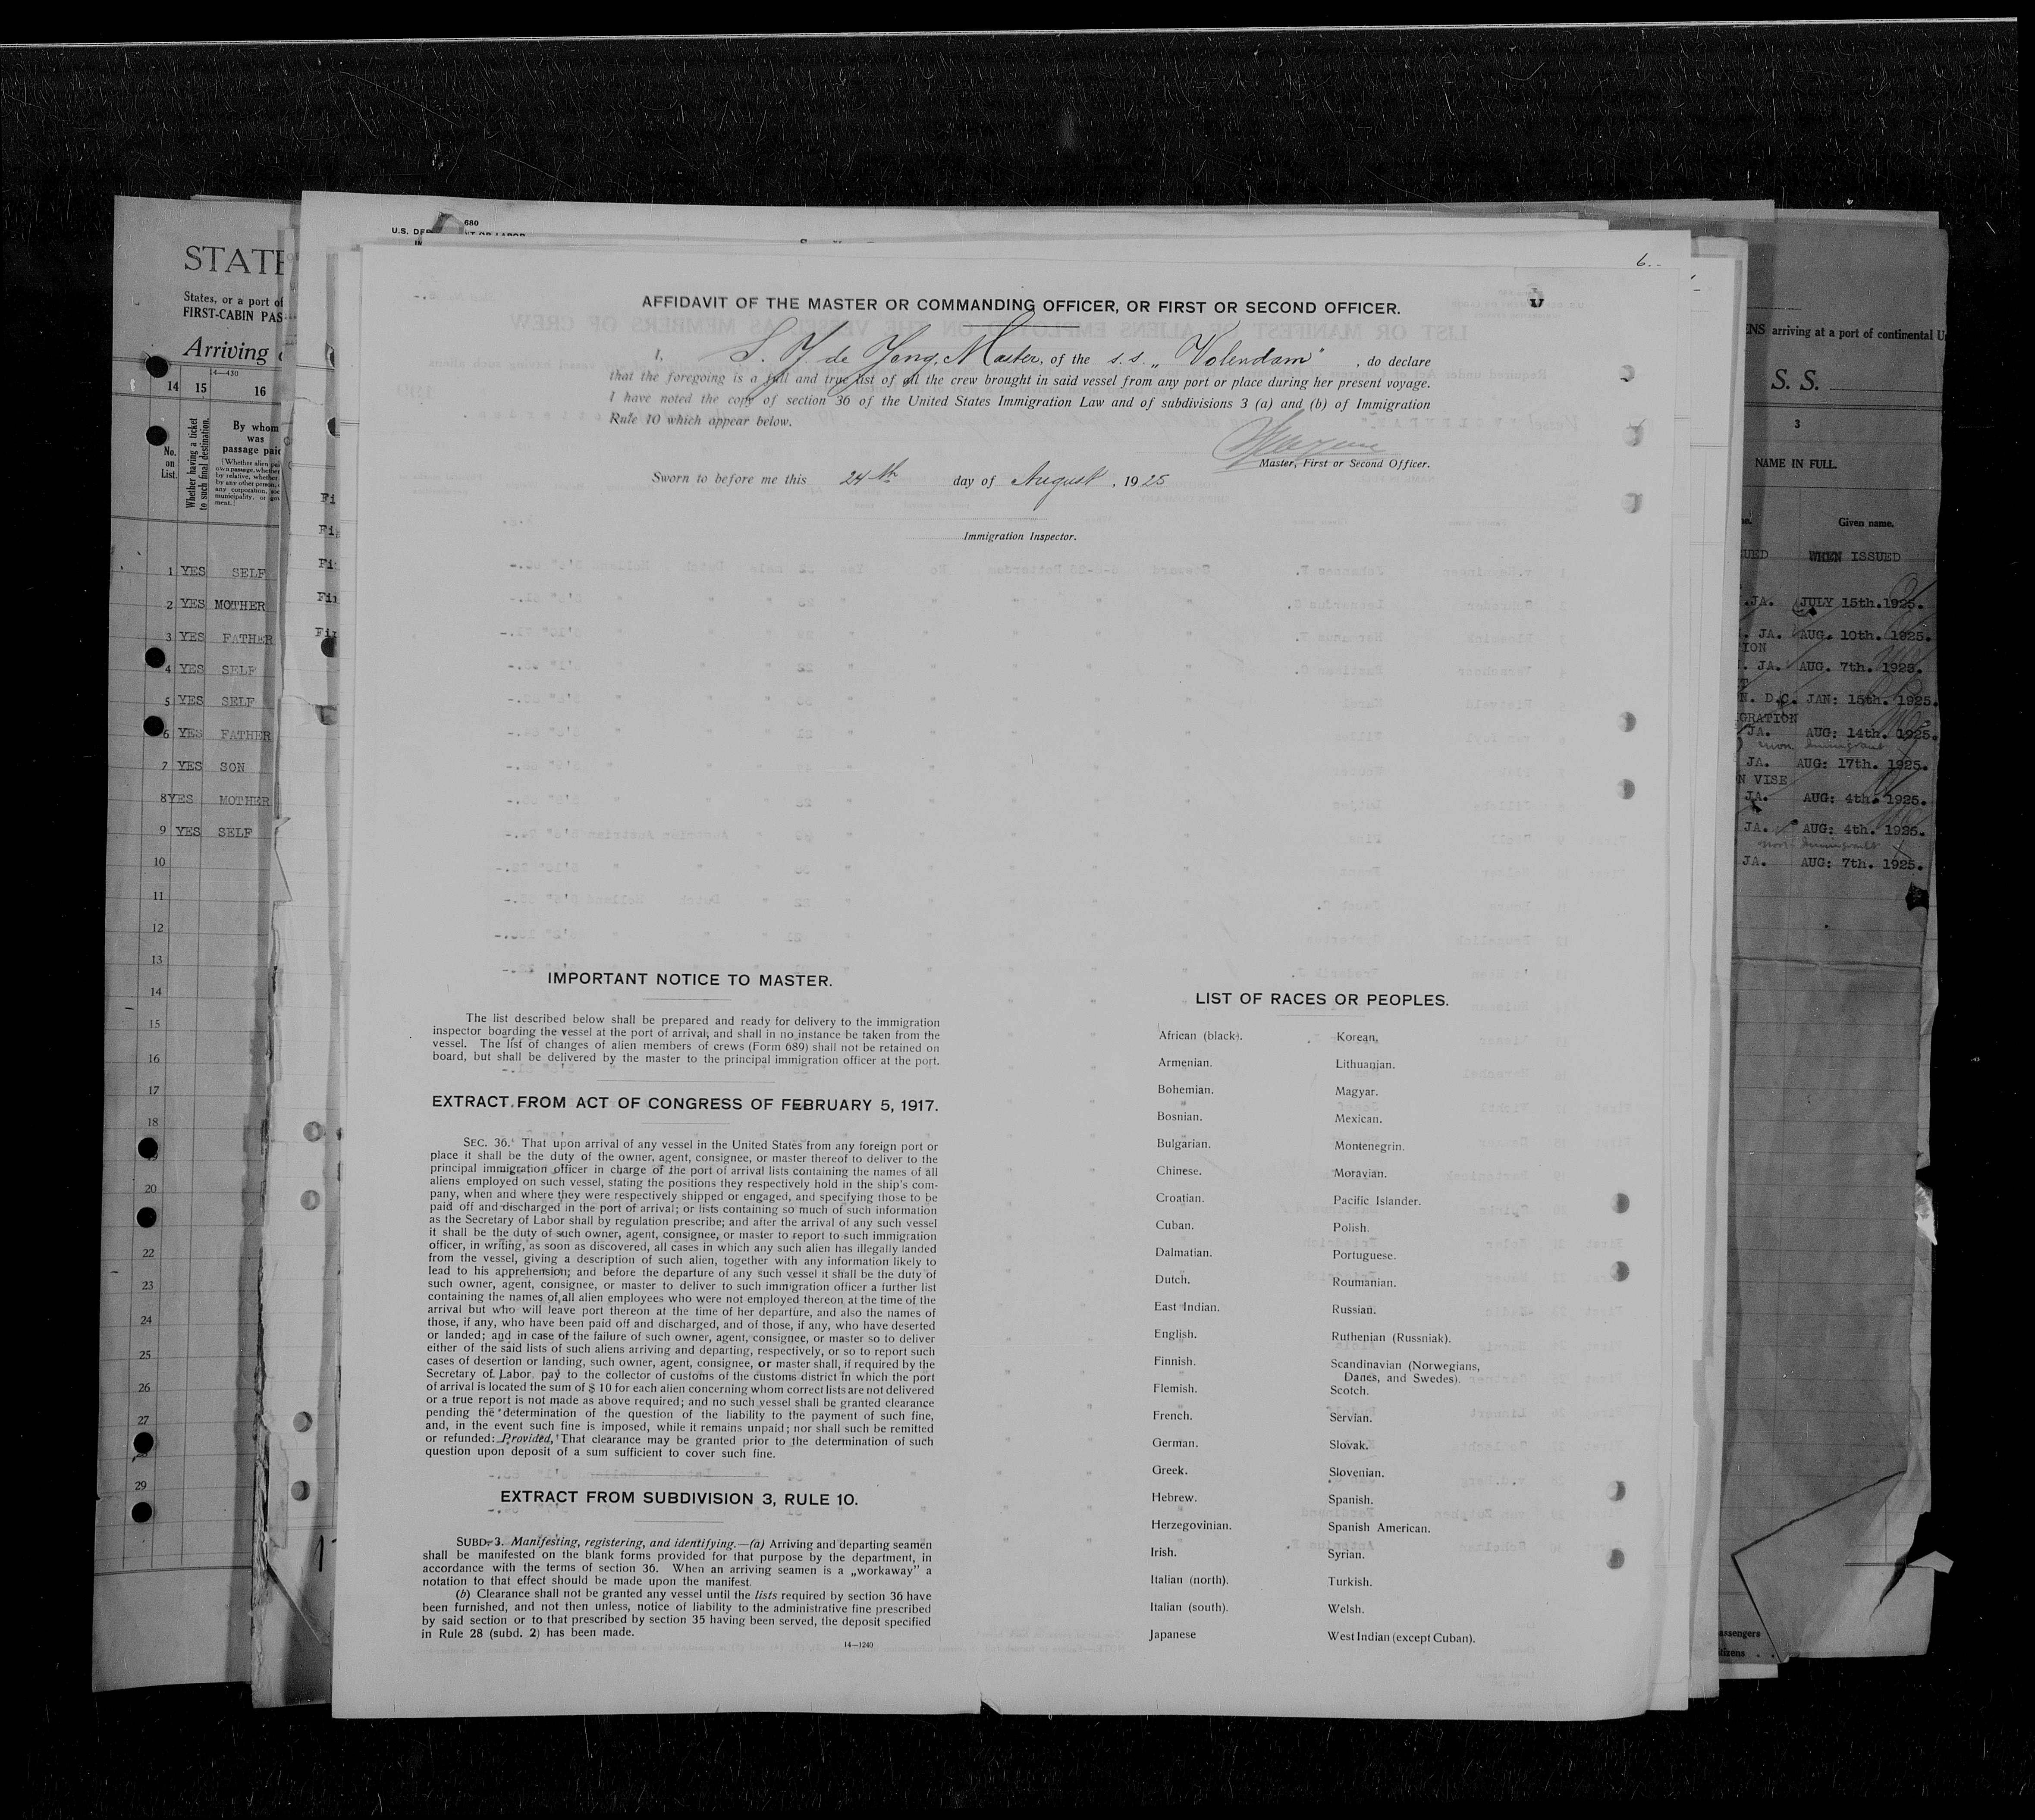 6
AFFIDAVIT OF THE MASTER OR COMMANDING OFFICER, OR FIRST OR SECOND OFFICER.
I, S. J. de Jong, Master, of the s.s. „ Volendam" , do declare
that the foregoing is a full and true list of all the crew brought in said vessel from any port or place during her present voyage.
I have noted the copy of section 36 of the United States Immigration Law and of subdivisions 3 (a) and (b) of Immigration
Rule 10 which appear below.
Master, First or Second Officer.
Sworn to before me this 24th day of August , 1925
Immigration Inspector.
IMPORTANT NOTICE TO MASTER.
The list described below shall be prepared and ready for delivery to the immigration
inspector boarding the vessel at the port of arrival, and shall in no instance be taken from the
vessel. The list of changes of alien members of crews (Form 689) shall not be retained on
board, but shall be delivered by the master to the principal immigration officer at the port.
EXTRACT FROM ACT OF CONGRESS OF FEBRUARY 5, 1917.
SEC. 36. That upon arrival of any vessel in the United States from any foreign port or
place it shall be the duty of the owner, agent, consignee, or master thereof to deliver to the
principal immigration officer in charge of the port of arrival lists containing the names of all
aliens employed on such vessel, stating the positions they respectively hold in the ship's com-
pany, when and where they were respectively shipped or engaged, and specifying those to be
paid off and discharged in the port of arrival; or lists containing so much of such information
as the Secretary of Labor shall by regulation prescribe; and after the arrival of any such vessel
it shall be the duty of such owner, agent, consignee, or master to report to such immigration
officer, in writing, as soon as discovered, all cases in which any such alien has illegally landed
from the vessel, giving a description of such alien, together with any information likely to
lead to his apprehension; and before the departure of any such vessel it shall be the duty of
such owner, agent, consignee, or master to deliver to such immigration officer a further list
containing the names of all alien employees who were not employed thereon at the time of the
arrival but who will leave port thereon at the time of her departure, and also the names of
those, if any, who have been paid off and discharged, and of those, if any, who have deserted
or landed; and in case of the failure of such owner, agent, consignee, or master so to deliver
either of the said lists of such aliens arriving and departing, respectively, or so to report such
cases of desertion or landing, such owner, agent, consignee, or master shall, if required by the
Secretary of Labor, pay to the collector of customs of the customs district in which the port
of arrival is located the sum of $ 10 for each alien concerning whom correct lists are not delivered
or a true report is not made as above required; and no such vessel shall be granted clearance
pending the determination of the question of the liability to the payment of such fine,
and, in the event such fine is imposed, while it remains unpaid; nor shall such be remitted
or refunded: Provided, That clearance may be granted prior to the determination of such
question upon deposit of a sum sufficient to cover such fine.
EXTRACT FROM SUBDIVISION 3, RULE 10.
SUBD. 3. Manifesting, registering, and identifying.—(a) Arriving and departing seamen
shall be manifested on the blank forms provided for that purpose by the department, in
accordance with the terms of section 36. When an arriving seamen is a „workaway" a
notation to that effect should be made upon the manifest.
(b) Clearance shall not be granted any vessel until the lists required by section 36 have
been furnished, and not then unless, notice of liability to the administrative fine prescribed
by said section or to that prescribed by section 35 having been served, the deposit specified
in Rule 28 (subd. 2) has been made.
14—1240
LIST OF RACES OR PEOPLES.
African (black).
Armenian.
Bohemian.
Bosnian.
Bulgarian.
Chinese.
Croatian.
Cuban.
Dalmatian.
Dutch.
East Indian.
English.
Finnish.
Flemish.
French.
German.
Greek.
Hebrew.
Herzegovinian.
Irish.
Italian (north).
Italian (south).
Japanese
Korean.
Lithuanian.
Magyar.
Mexican.
Montenegrin.
Moravian.
Pacific Islander.
Polish.
Portuguese.
Roumanian.
Russian.
Ruthenian (Russniak).
Scandinavian (Norwegians,
Danes, and Swedes).
Scotch.
Servian.
Slovak.
Slovenian.
Spanish.
Spanish American.
Syrian.
Turkish.
Welsh.
West Indian (except Cuban).
680
U.S.
STATE
States, or a port of
FIRST-CABIN PAS
Arriving
14—430
14 15 16
No. on List.
Whether having a ticket to such final destination.
By whom
was
passage paid
1 YES SELF
2 YES MOTHER
3 YES FATHER
4 YES SELF
5 YES SELF
6 YES FATHER
7 YES SON
8 YES MOTHER
9 YES SELF
10
11
12
13
14
15
16
17
18
20
22
23
24
25
26
27
29
ENS arriving at a port of continental
S. S.
3
NAME IN FULL.
Given name.
WHEN ISSUED
JA. JULY 15th. 1925.
JA. AUG. 10th. 1925.
JA. AUG. 7th. 1925.
D.C. JAN: 15th. 1925.
JA. AUG: 14th. 1925.
JA. AUG: 17th. 1925.
VISE
JA. AUG: 4th. 1925.
JA. AUG: 4th. 1925.
JA. AUG: 7th. 1925.